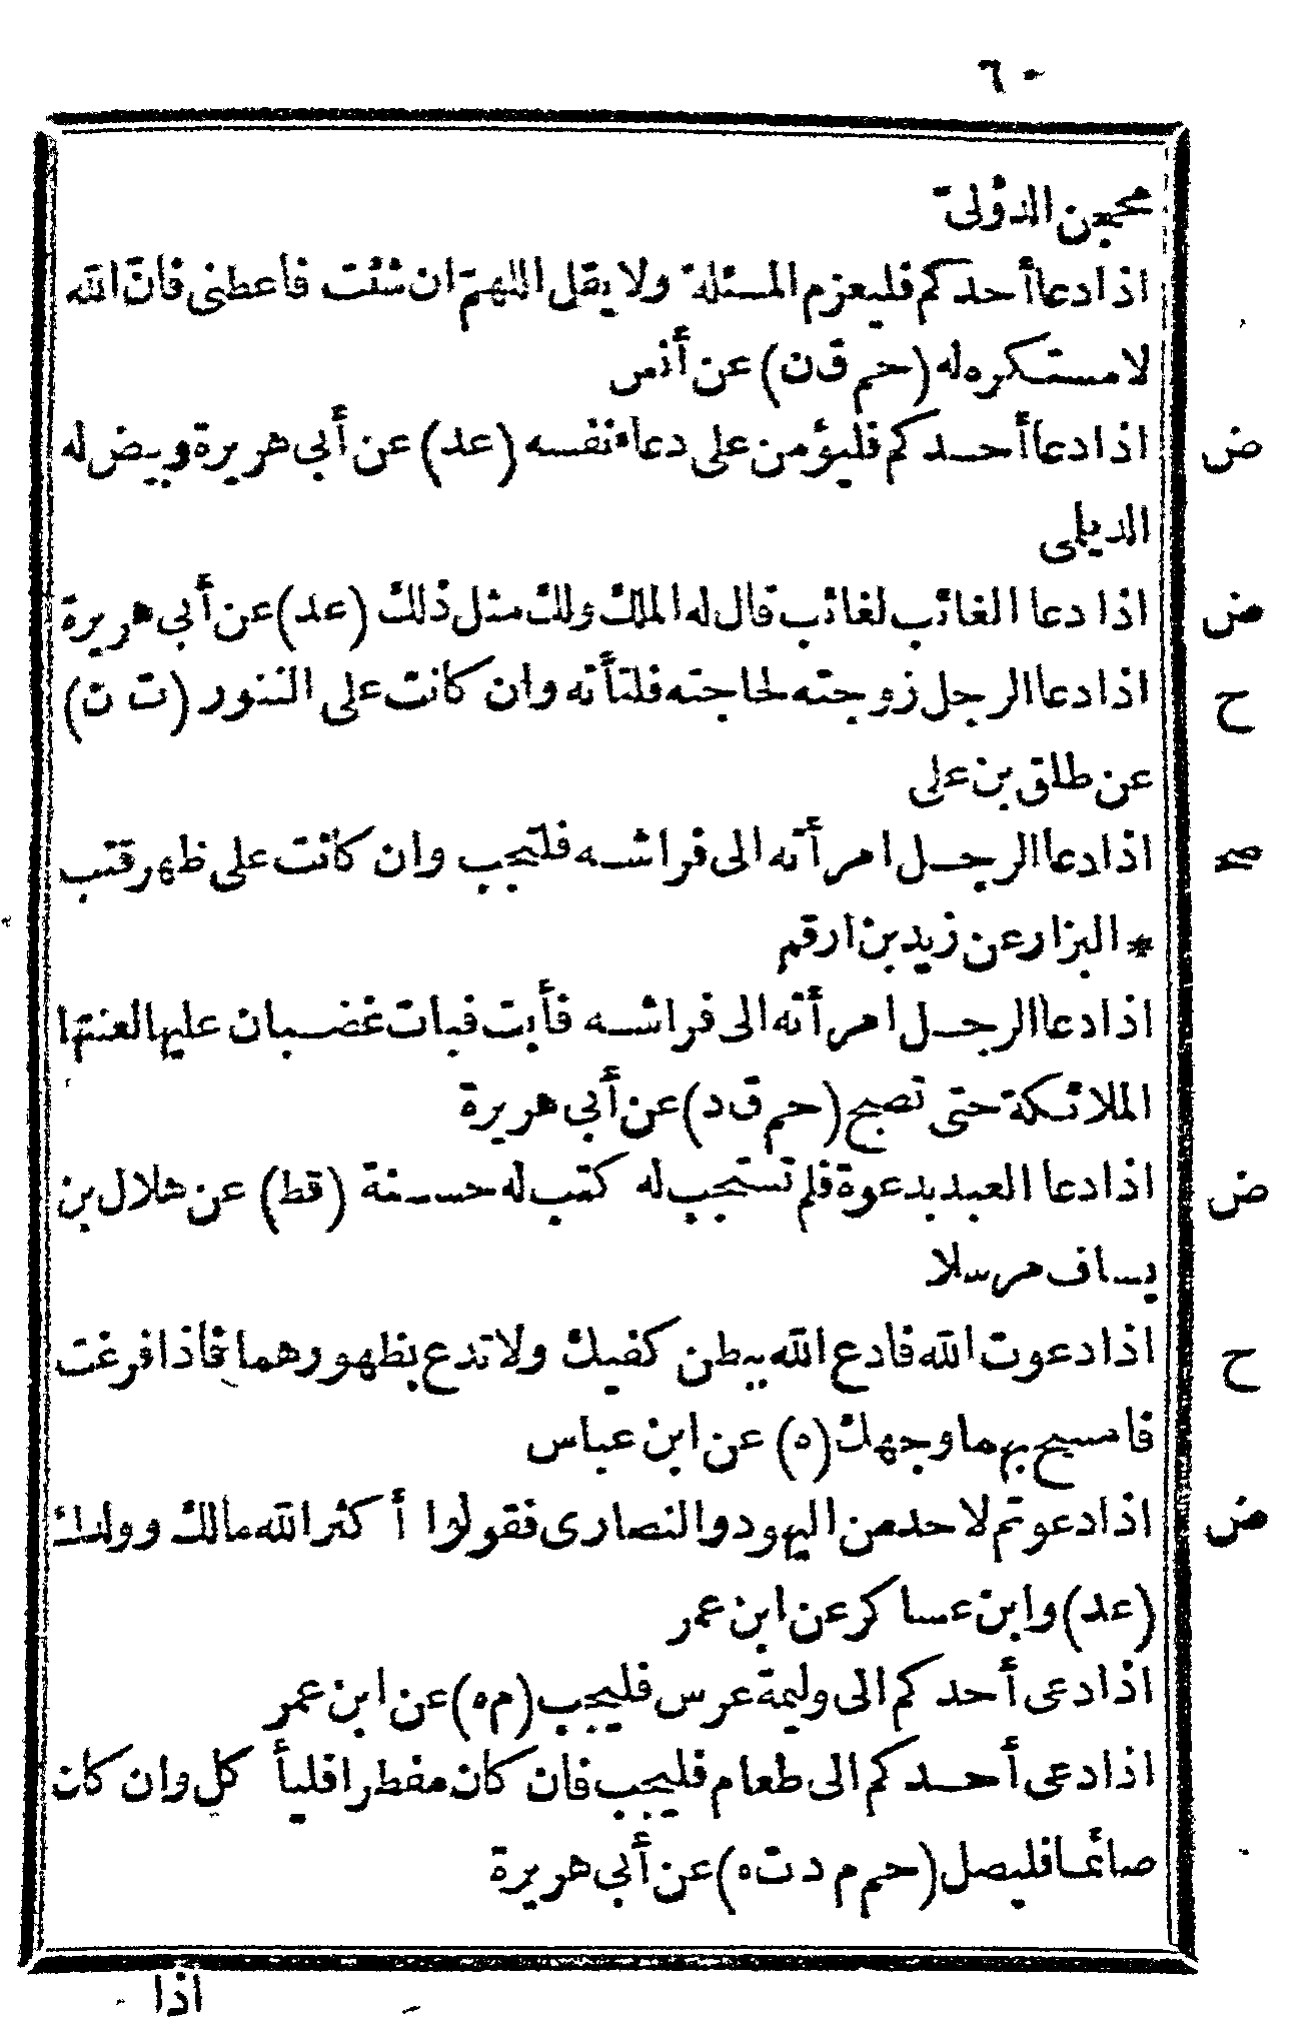 ٦٠
محجن الدؤلىّ
اذا دعا أحدكم فليعزم المسئلة ولا يقل اللهمّ ان شئت فاعطنى فانّ الله
لا مستكره له (حم ق ن) عن أنس
ض اذا دعا أحدكم فليؤمن على دعاء نفسه (عد) عن أبى هريرة وبيض له
الديلمى
ض اذا دعا الغائب لغائب قال له الملك ولك مثل ذلك (عد) عن أبى هريرة
ح اذا دعا الرجل زوجته لحاجته فلتأته وان كانت على التنور (ت ن)
عن طلق بن على
صح اذا دعا الرجل امرأته الى فراشه فلتجب وان كانت على ظهر قتب
* البزار عن زيد بن ارقم
اذا دعا الرجل امرأته الى فراشه فأبت فبات غضبان عليها لعنتها
الملائكة حتى تصبح (حم ق د) عن أبى هريرة
ض اذا دعا العبد بدعوة فلم تستجب له كتب له حسنة (قط) عن هلال بن
يساف مرسلا
ح اذا دعوت الله فادع الله ببطن كفيك ولا تدع بظهورهما فاذا فرغت
فامسح بهما وجهك (ه) عن ابن عباس
ض اذا دعوتم لاحد من اليهود والنصارى فقولوا أكثر الله مالك وولدك
(عد) وابن عساكر عن ابن عمر
اذا دعى أحدكم الى وليمة عرس فليجب (م ه) عن ابن عمر
اذا دعى أحدكم الى طعام فليجب فان كان مفطرا فليأكل وان كان
صائما فليصل (حم م د ت ه) عن أبى هريرة
اذا